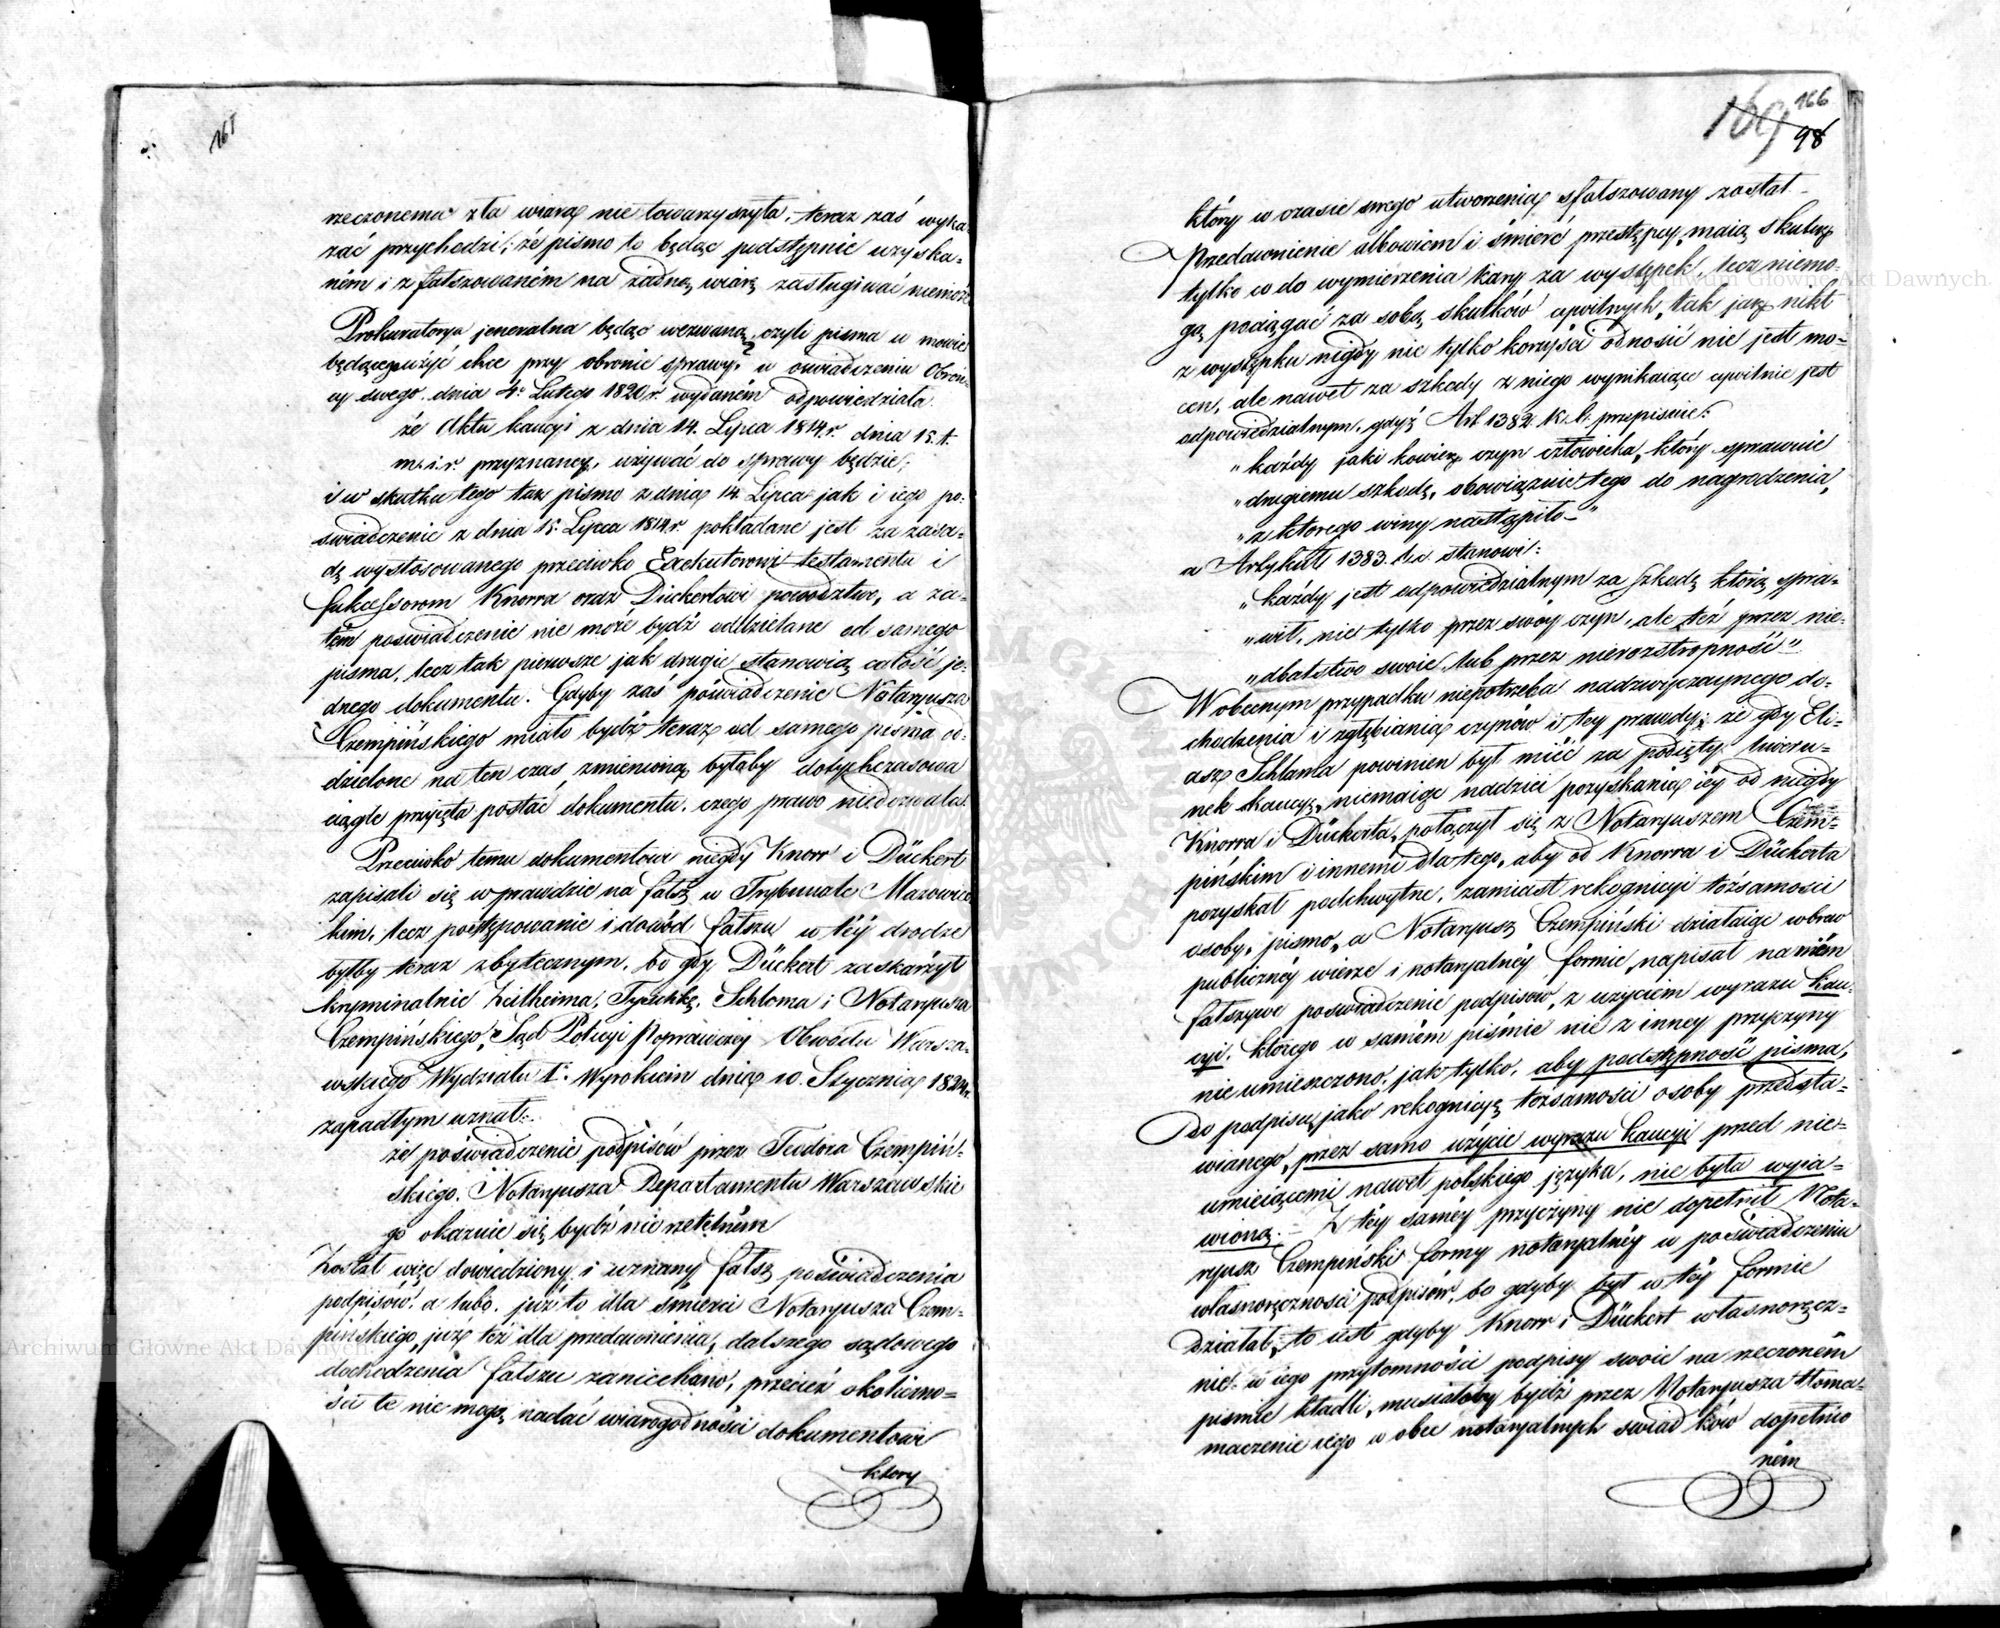 165
rzeczonemu zła wiara nie towarzyszyła, teraz zaś wyka-
zać przychodzi, że pismo to będąc podstępnie uzyska-
ném i zfałszowaném na żadną wiarę zasługiwać niemoże
Prokuratorya jeneralna będąc wezwaną, czyli pisma w mowie
będącego użyć chce przy obronie sprawy, w oświadczeniu Obroń-
cy swego dnia 4º Lutego 1820 r. wydaném odpowiedziała
że Aktu kaucyi z dnia 14. Lipca 1814 r. dnia 15. t.
m. i. r. przyznaney, używać do sprawy będzie;
i w skutku tego tak pismo z dnia 14 Lipca jak i iego po-
świadczenie z dnia 15. Lipca 1814 r. pokładane jest za zasa-
dę wystosowanego przeciwko Exekutorowi testamentu i
Sukcessorom Knorra oraz Dückertowi powództwa, a za-
tém poświadczenie nie może bydź oddzielane od samego
pisma, lecz tak pierwsze jak drugie stanowią całość je-
dnego dokumentu. Gdyby zaś poświadczenie Notaryusza
Czempińskiego miało bydź teraz od samego pisma od-
dzielone na ten czas zmienioną byłaby dotychczasowa
ciągle przyjęta postać dokumentu, czego prawo niedozwala.
Przeciwko temu dokumentowi niegdy Knorr i Dückert
zapisali się wprawdzie na fałsz w Trybunale Mazowiec-
kim, lecz postępowanie i dowód fałszu w téy drodze
byłby teraz zbytecznym, bo gdy Dückert zaskarżył
kryminalnie Zeltheima, Tyschkę, Schloma i Notaryusza
Czempińskiego, Sąd Policyi Poprawczey Obwodu Warsza-
wskiego Wydziału I. Wyrokiem dnia 10. Stycznia 1824 r.
zapadłym uznał:
że poświadczenie podpisów przez Teodora Czempiń-
skiego Notaryusza Departamentu Warszawskie
go okazuie się bydź nierzetelném
Został więc dowiedziony i uznany fałsz poświadczenia
podpisów, a lubo już to dla śmierci Notaryusza Czem-
pińskiego, już też dla przedawnienia, dalszego sądowego
dochodzenia fałszu zaniechano, przecież okoliczno-
ści te nie mogą nadać wiarogodności dokumentowi
który
169 166
98
który w czasie swego utworzenia sfałszowany został
Przedawnienie albowiem i śmierć przestępcy, maią skutek
tylko co do wymierzenia kary za występek, lecz niemo-
gą pociągać za sobą skutków cywilnych, tak jak nikt
z występku nigdy nie tylko korzyści odnosić nie jest mo-
cen, ale nawet za szkody z niego wynikaiące cywilnie jest
odpowiedzialnym, gdyż Art 1382 K. C. przepisuie:
"każdy jaki kowiek czyn człowieka, który sprawuie
"drugiemu szkodę, obowiązuie tego do nagrodzenia,
"z którego winy nastąpiło"
a Artykuł 1383. t. c. stanowi:
"każdy jest odpowiedzialnym za szkodę którą spra-
"wił, nie tylko przez swóy czyn, ale też przez nie-
"dbalstwo swoie, lub przez nieroztropność"
W obecnym przypadku niepotrzeba nadzwyczaynego do-
chodzenia i zgłębiania czynów i tey prawdy, że gdy Eli-
asz Schlama powinien był mieć za podjęty liweru-
nek kaucyę, niemaiąc nadziei pozyskania iéy od niegdy
Knorra i Dückerta, połączył się z Notaryuszem Czem-
pińskim i innemi dla tego, aby od Knorra i Dückerta
pozyskał podchwytne, zamiast rekognicyi tożsamości
osoby, pismo, a Notaryusz Czempiński działaiąc wbrew
publicznéy wierze i notaryalnéy formie, napisał na niém
fałszywe poświadczenie podpisów, z użyciem wyrazu kau-
cyi, którego w samém piśmie nie z inney przyczyny
nie umieszczono, jak tylko, aby podstępność pisma,
Do podpisu, jako rekognicyę tożsamości osoby przedsta-
wianego, przez samo użycie wyrazu kaucyi przed nie-
umieiącemi nawet polskiego języka, nie była wyia-
wioną. – Z téy saméy przyczyny nie dopełnił Nota-
ryusz Czempiński formy notaryalnéy w poświadczeniu
własnoręczności podpisów, bo gdyby był w téy formie
Działał, to iest gdyby Knorr i Dückert własnoręcz-
nie w iego przytomności podpisy swoie na rzeczoném
piśmie kładli, musiałoby bydź przez Notaryusza tłoma-
maczenie iego w obec notaryalnych świadków dopełnio
ném
Archiwum Główne Akt Dawnych
Archiwum Główne Akt Dawnych